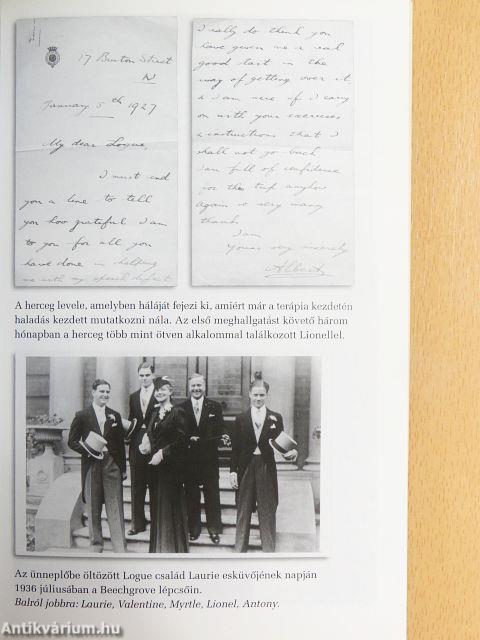 17 Bruton Street
W
January 5th 1927
My dear Logue,
I must send
you a line to tell
you how grateful I am
to you for all you
have done in helping
me with my speech defect
I really do think you
have given me a real
good start in the
way of getting over it
& I am sure if I carry
on with your exercises
& instructions that I
shall not go back.
I am full of confidence
for this trip anyhow
Again so very many
thanks
I am
Yours very sincerely
Albert
A herceg levele, amelyben háláját fejezi ki, amiért már a terápia kezdetén
haladás kezdett mutatkozni nála. Az első meghallgatást követő három
hónapban a herceg több mint ötven alkalommal találkozott Lionellel.
Az ünneplőbe öltözött Logue család Laurie esküvőjének napján
1936 júliusában a Beechgrove lépcsőin.
Balról jobbra: Laurie, Valentine, Myrtle, Lionel, Antony.
Antikvárium.hu